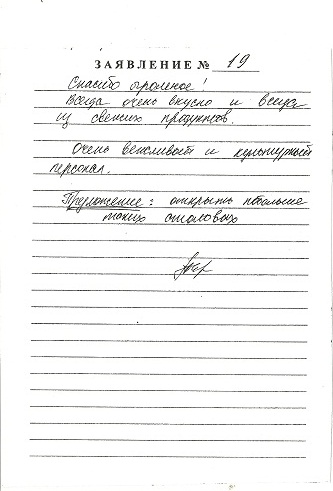 ЗАЯВЛЕНИЕ № 19
Спасибо огромное!
Всегда очень вкусно и всегда
из свежих продуктов.
Очень вежливый и культурный
персонал.
Предложение: открыть побольше
таких столовых